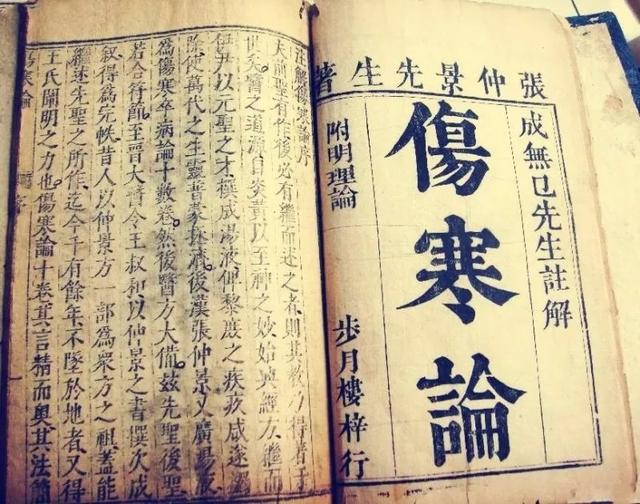 張仲景先生著
成無已先生註解
傷寒論
附明理論
步月樓梓行
註解傷寒論序
夫前聖有作後必有繼而述之者則其教乃得著于
世矣醫之道源自炎黃以至神之妙始興經方繼而
伊尹以元聖之才撰成湯液俾黎庶之疾疢咸遂蠲
除使萬代之生靈普蒙拯濟後漢張仲景又廣湯液
為傷寒卒病論十數卷然後醫方大備茲先聖後聖
若合符節至晉太醫令王叔和以仲景之書撰次成
叙得為完帙昔人以仲景方 部為眾方之祖蓋能
繼述先聖之所作迄今千有餘年不墜於地者又得
王氏闡明之力也傷寒論十卷其言精而奧其法簡
寒論